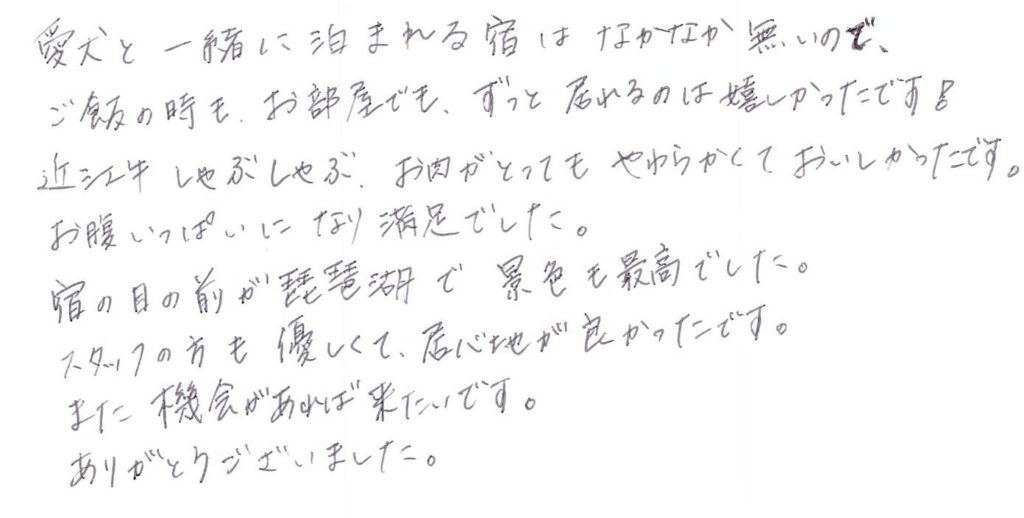 愛犬と一緒に泊まれる宿はなかなか無いので、
ご飯の時も、お部屋でも、ずっと居れるのは嬉しかったです!
近江牛しゃぶしゃぶ、お肉がとってもやわらかくておいしかったです。
お腹いっぱいになり満足でした。
宿の目の前が琵琶湖で景色も最高でした。
スタッフの方も優しくて、居心地が良かったです。
また機会があれば来たいです。
ありがとうございました。